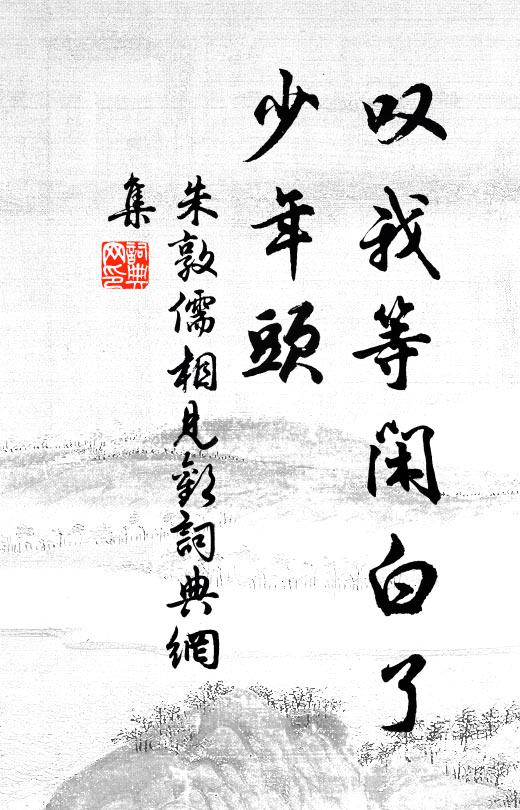 叹我等闲白了
少年頭
朱敦儒相見歡詞典網
集
詞典
网印